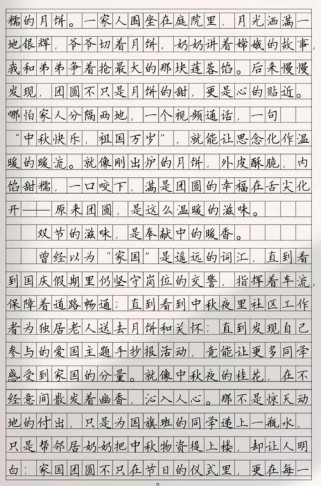 糯的月饼。一家人围坐在庭院里，月光洒满一
地银辉，爷爷切着月饼，奶奶讲着嫦娥的故事，
我和弟弟争着抢最大的那块莲蓉馅。后来慢慢
发现，团圆不只是月饼的甜，更是心的贴近。
哪怕家人分隔两地，一个视频通话，一句
“中秋快乐，祖国万岁”，就能让思念化作温
暖的暖流。就像刚出炉的月饼，外皮酥脆，内
馅甜糯，一口咬下，满是团圆的幸福在舌尖化
开——原来团圆，是这么温暖的滋味。
双节的滋味，是奉献中的暖香。
曾经以为“家国”是遥远的词汇，直到看
到国庆假期里仍坚守岗位的交警，指挥着车流，
保障着道路畅通；直到看到中秋夜里社区工作
者为独居老人送去月饼和关怀；直到发现自己
参与的爱国主题手抄报活动，竟能让更多同学
感受到家国的分量。就像中秋夜的桂花，在不
经意间散发着幽香，沁人人心。那不是惊天动
地的付出，只是为国旗班的同学递上一瓶水，
只是帮邻居奶奶把中秋物资提上楼，却让人明
白：家国团圆不只在节日的仪式里，更在每一